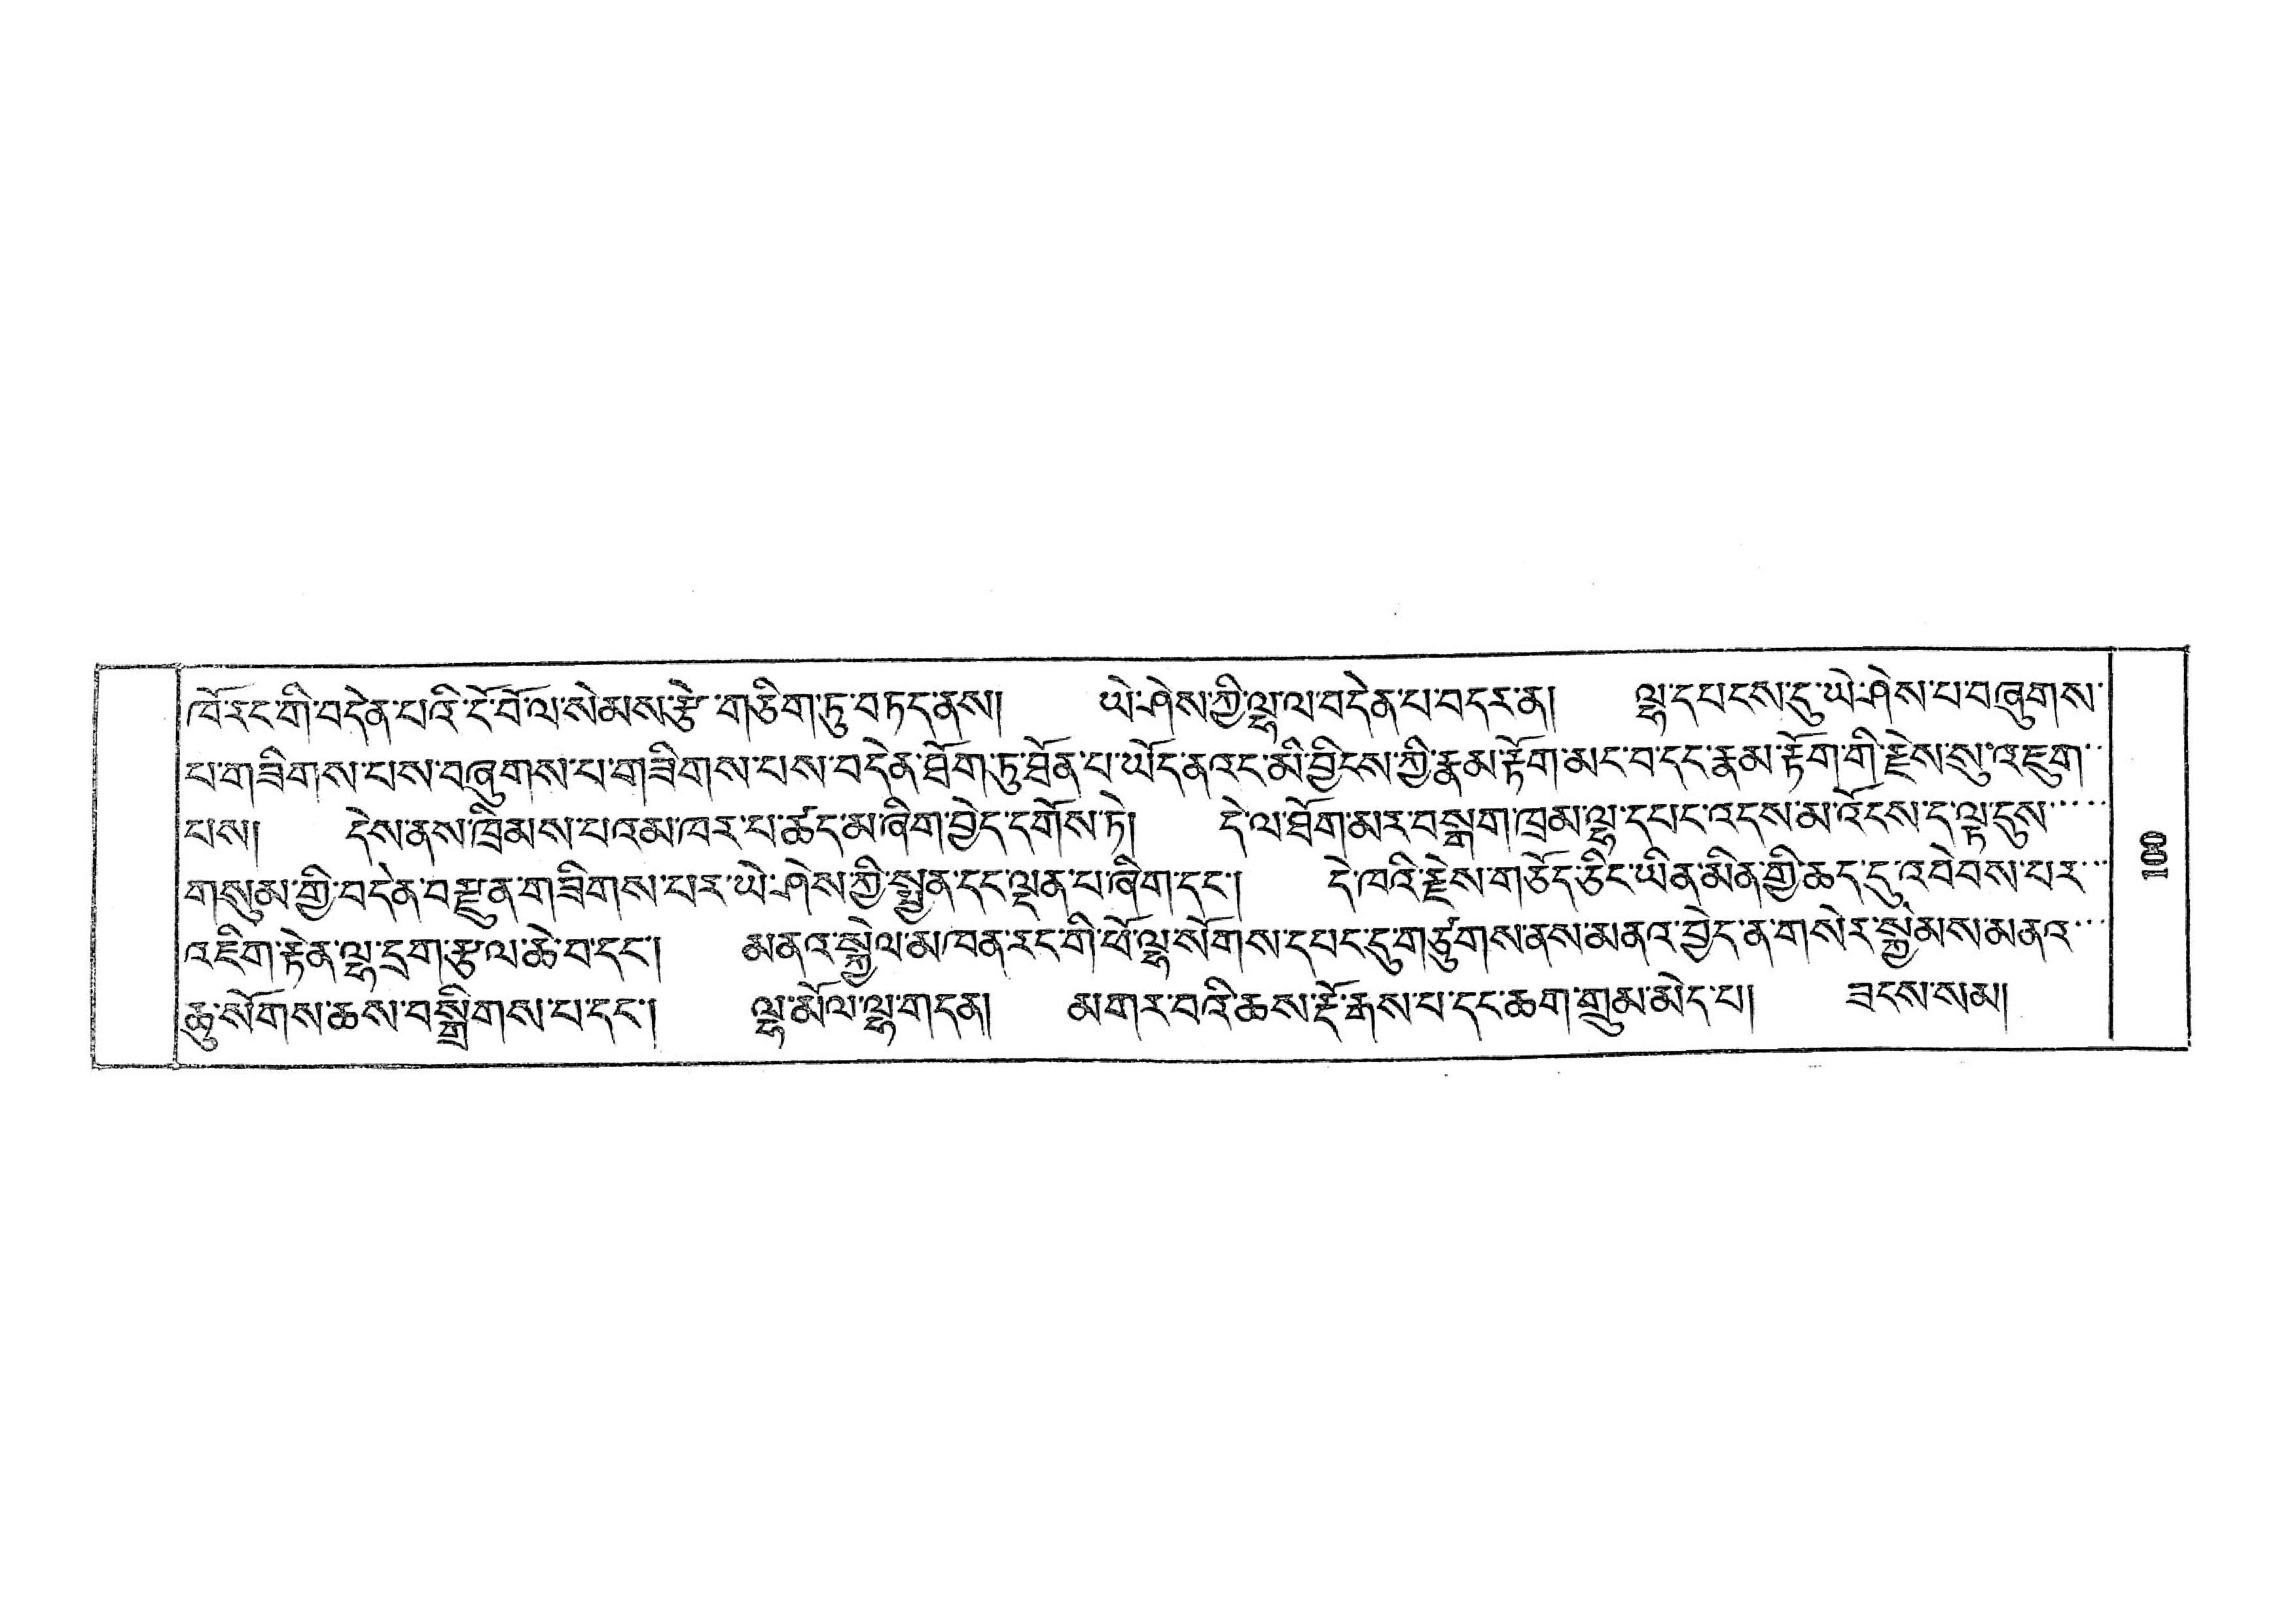 ཁོ་རང་གི་བདེན་པའི་ངོ་བོ་ལ་སེམས་རྩེ་གཅིག་ཏུ་བཏད་ནས།  ཡེ་ཤེས་ཀྱི་ལྷ་ལ་བདེན་པ་བདར་ན།  ལྷ་དཔངས་དུ་ཡེ་ཤེས་པ་བཞུགས་
པ་གཟིགས་པས་བཞུགས་པ་གཟིགས་པས་བདེན་ཐོག་ཏུ་ཐོན་པ་ཡོད་ན་འང་མི་བྱིངས་ཀྱི་རྣམ་རྟོག་མང་བ་དང་རྣམ་རྟོག་གི་རྗེས་སུ་འཇུག་
པས།  དེས་ནས་ཁྲིམས་པའམ་ཁར་པ་ཚད་མ་ཞིག་བྱེད་དགོས་ཏེ།  དེ་ལ་ཐོག་མར་བསྒྲག་ཁྲམ་ལྷ་དཔང་འདས་མ་འོངས་ད་ལྟ་དུས་
གསུམ་གྱི་བདེན་བརྫུན་གཟིགས་པར་ཡེ་ཤེས་ཀྱི་སྤྱན་དང་ལྡན་པ་ཞིག་དང་།  དེ་ཁའི་རྗེས་གཅོད་ཅིང་ཡིན་མིན་གྱི་ཆད་དུ་འབེབས་པར་
འཇིག་རྟེན་ལྷ་དྲག་རྩལ་ཆེ་བ་དང་།  མནའ་སྐྱེལ་མཁན་རང་གི་ཕོ་ལྷ་སོགས་དཔང་དུ་གཙུགས་ནས་མནའ་བྱེད་ན་གསེར་སྐྱེམས་མནའ་
ཆུ་སོགས་ཆས་བསྒྲིགས་པ་དང་།  ལྷ་མོལ་ལྷ་གདན།  མགར་བའི་ཆས་རྡོ་རྒས་པ་དང་ཆག་གྲུམ་མེད་པ།  ཟངས་སམ།